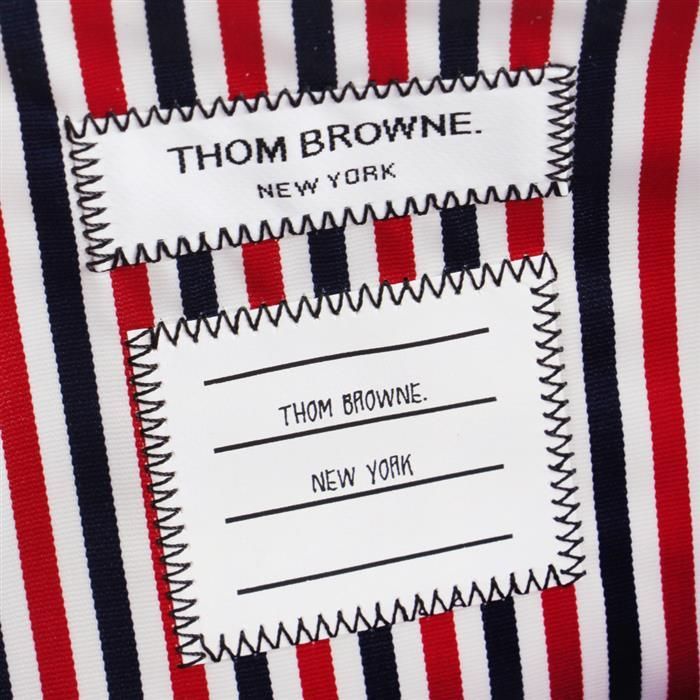 THOM BROWNE.
NEW YORK
THOM BROWNE.
NEW YORK